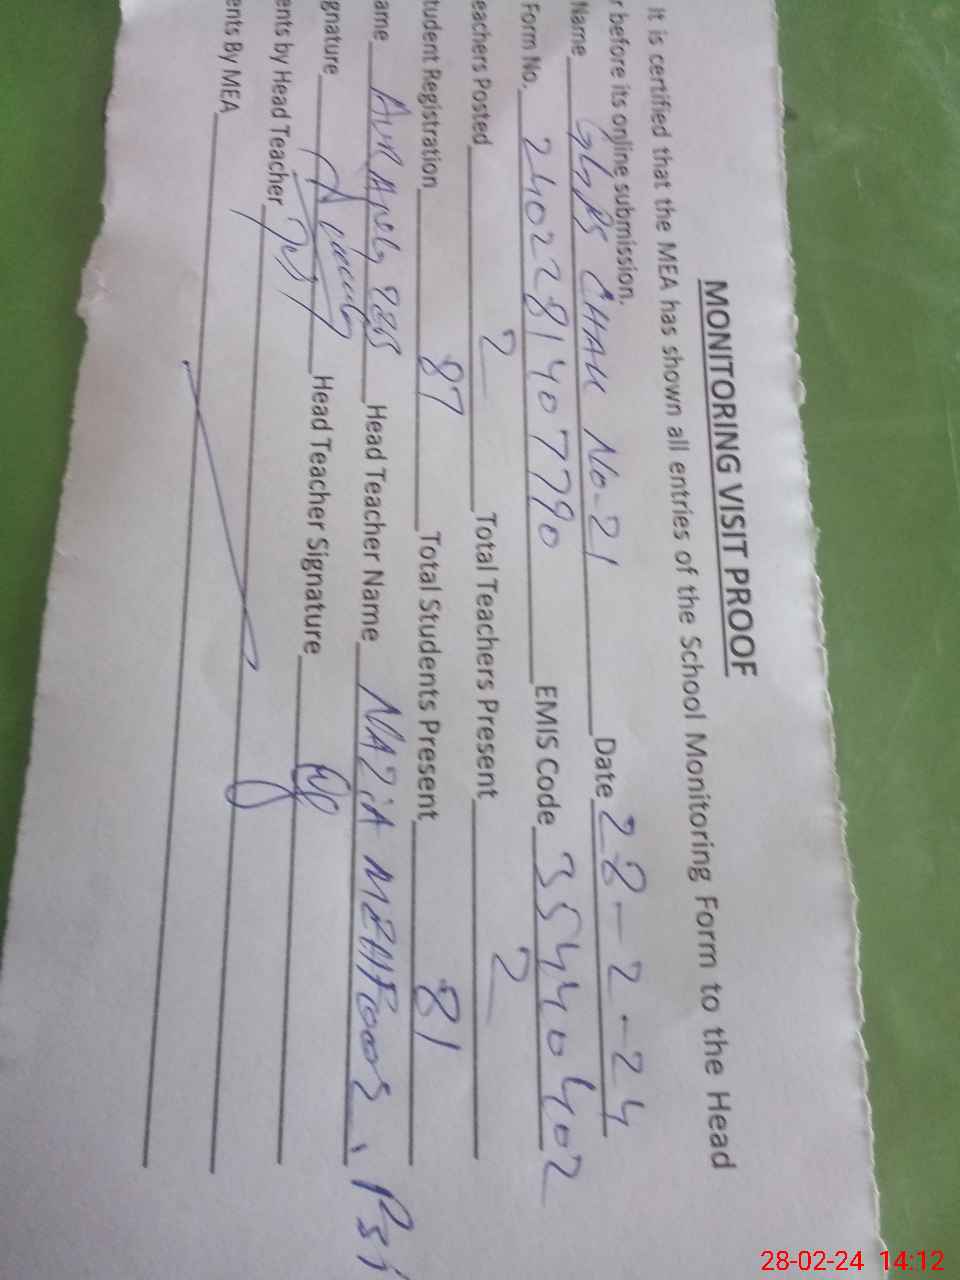 MONITORING VISIT PROOF
It is certified that the MEA has shown all entries of the School Monitoring Form to the Head
r before its online submission.
Name GGPS CHAK No-21 Date 28-2-24
Form No. 2402281407790 EMIS Code 35440402
eachers Posted 2 Total Teachers Present 2
tudent Registration 87 Total Students Present 81
ame Head Teacher Name NAZIA MEHFOOZ, PST
gnature Head Teacher Signature
ents by Head Teacher
ents By MEA
28-02-24 14:12